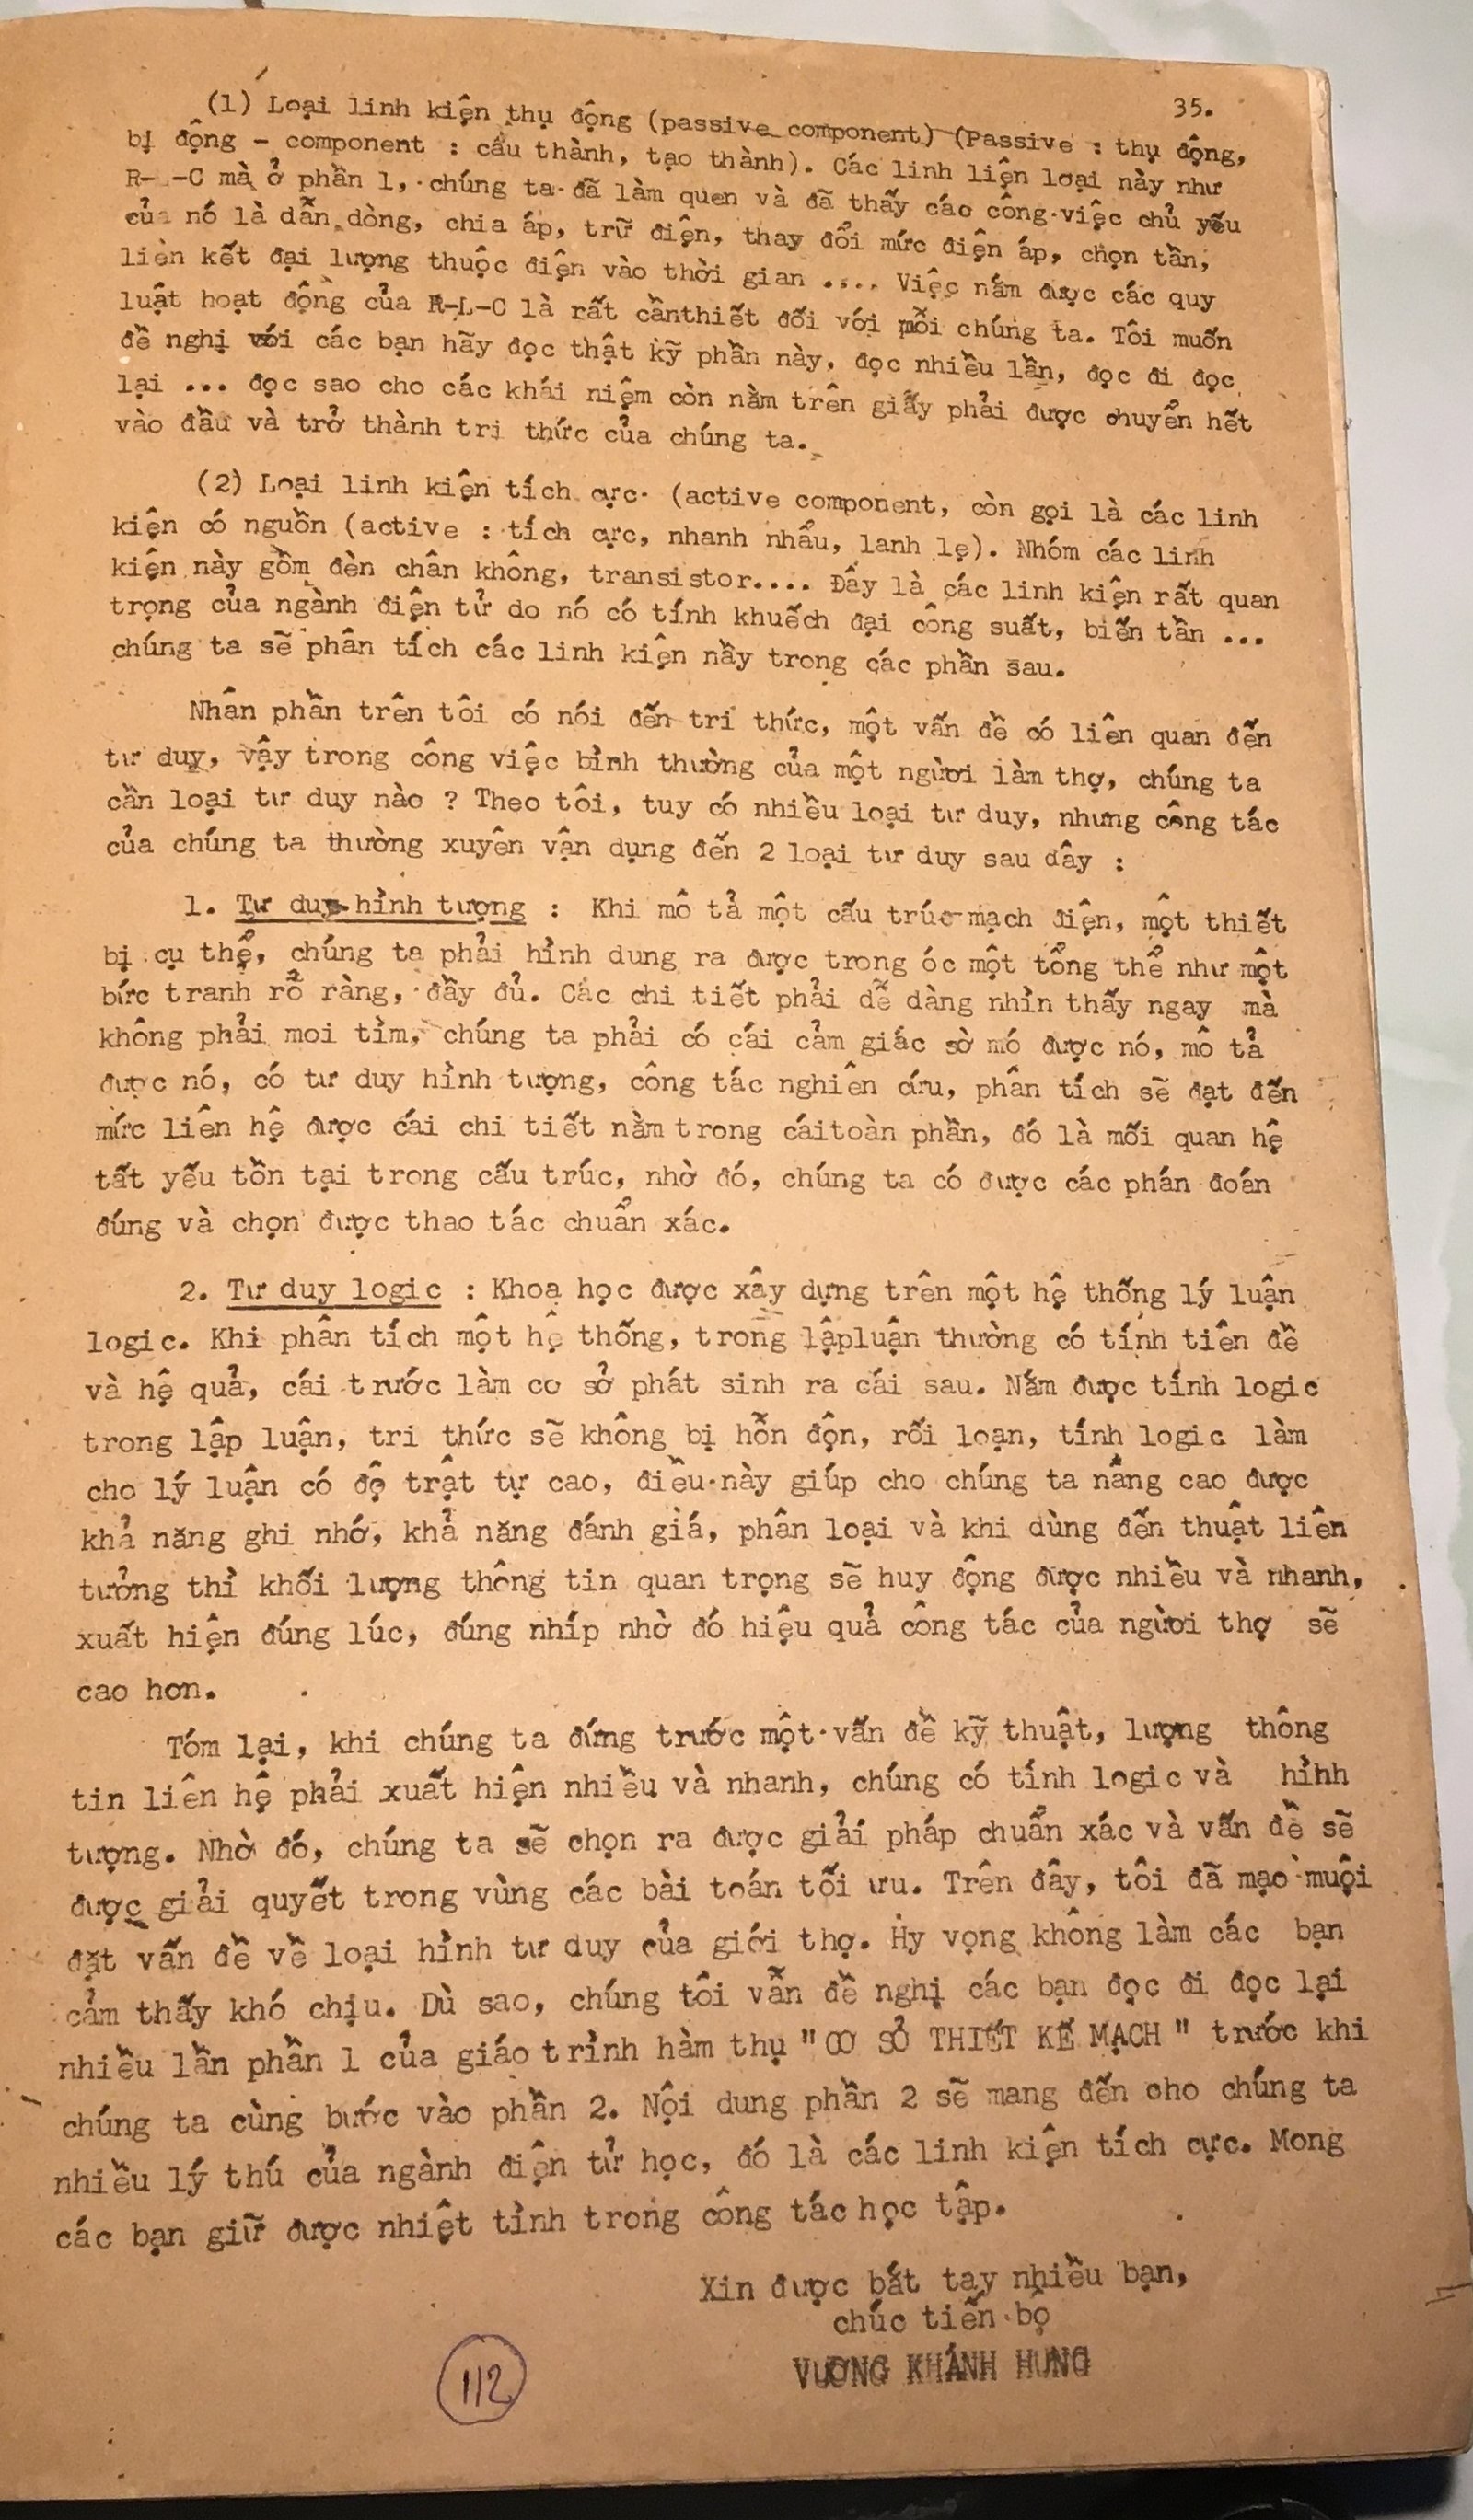 35.
(1) Loại linh kiện thụ động (passive component) (Passive : thụ động,
bị động - component : cấu thành, tạo thành). Các linh liện loại này như
R- -C mà ở phần 1, chúng ta đã làm quen và đã thấy các công việc chủ yếu
của nó là dẫn dòng, chia áp, trữ điện, thay đổi mức điện áp, chọn tần,
liên kết đại lượng thuộc điện vào thời gian .... Việc nắm được các quy
luật hoạt động của R-L-C là rất cầnthiết đối với mỗi chúng ta. Tôi muốn
đề nghị với các bạn hãy đọc thật kỹ phần này, đọc nhiều lần, đọc đi đọc
lại ... đọc sao cho các khái niệm còn nằm trên giấy phải được chuyển hết
vào đầu và trở thành tri thức của chúng ta.
(2) Loại linh kiện tích cực (active component, còn gọi là các linh
kiện có nguồn (active : tích cực, nhanh nhẩu, lanh lẹ). Nhóm các linh
kiện này gồm đèn chân không, transistor.... Đây là các linh kiện rất quan
trọng của ngành điện tử do nó có tính khuếch đại công suất, biến tần ...
chúng ta sẽ phân tích các linh kiện nầy trong các phần sau.
Nhân phần trên tôi có nói đến tri thức, một vấn đề có liên quan đến
tư duy, vậy trong công việc bình thường của một người làm thợ, chúng ta
cần loại tư duy nào ? Theo tôi, tuy có nhiều loại tư duy, nhưng công tác
của chúng ta thường xuyên vận dụng đến 2 loại tư duy sau đây :
1. Tư duy hình tượng : Khi mô tả một cấu trúc mạch điện, một thiết
bị cụ thể, chúng ta phải hình dung ra được trong óc một tổng thể như một
bức tranh rõ ràng, đầy đủ. Các chi tiết phải dễ dàng nhìn thấy ngay mà
không phải moi tìm, chúng ta phải có cái cảm giác sờ mó được nó, mô tả
được nó, có tư duy hình tượng, công tác nghiên cứu, phân tích sẽ đạt đến
mức liên hệ được cái chi tiết nằm trong cáitoàn phần, đó là mối quan hệ
tất yếu tồn tại trong cấu trúc, nhờ đó, chúng ta có được các phán đoán
đúng và chọn được thao tác chuẩn xác.
2. Tư duy logic : Khoa học được xây dựng trên một hệ thống lý luận
logic. Khi phân tích một hệ thống, trong lậpluận thường có tính tiên đề
và hệ quả, cái trước làm cơ sở phát sinh ra cái sau. Nắm được tính logic
trong lập luận, tri thức sẽ không bị hỗn độn, rối loạn, tính logic làm
cho lý luận có độ trật tự cao, điều này giúp cho chúng ta nâng cao được
khả năng ghi nhớ, khả năng đánh giá, phân loại và khi dùng đến thuật liên
tưởng thì khối lượng thông tin quan trọng sẽ huy động được nhiều và nhanh,
xuất hiện đúng lúc, đúng nhíp nhờ đó hiệu quả công tác của người thợ sẽ
cao hơn.
Tóm lại, khi chúng ta đứng trước một vấn đề kỹ thuật, lượng thông
tin liên hệ phải xuất hiện nhiều và nhanh, chúng có tính logic và hình
tượng. Nhờ đó, chúng ta sẽ chọn ra được giải pháp chuẩn xác và vấn đề sẽ
được giải quyết trong vùng các bài toán tối ưu. Trên đây, tôi đã mạo muội
đặt vấn đề về loại hình tư duy của giới thợ. Hy vọng không làm các bạn
cảm thấy khó chịu. Dù sao, chúng tôi vẫn đề nghị các bạn đọc đi đọc lại
nhiều lần phần 1 của giáo trình hàm thụ "CƠ SỞ THIẾT KẾ MẠCH" trước khi
chúng ta cùng bước vào phần 2. Nội dung phần 2 sẽ mang đến cho chúng ta
nhiều lý thú của ngành điện tử học, đó là các linh kiện tích cực. Mong
các bạn giữ được nhiệt tình trong công tác học tập.
Xin được bắt tay nhiều bạn,
chúc tiến bộ
VƯƠNG KHÁNH HƯNG
112